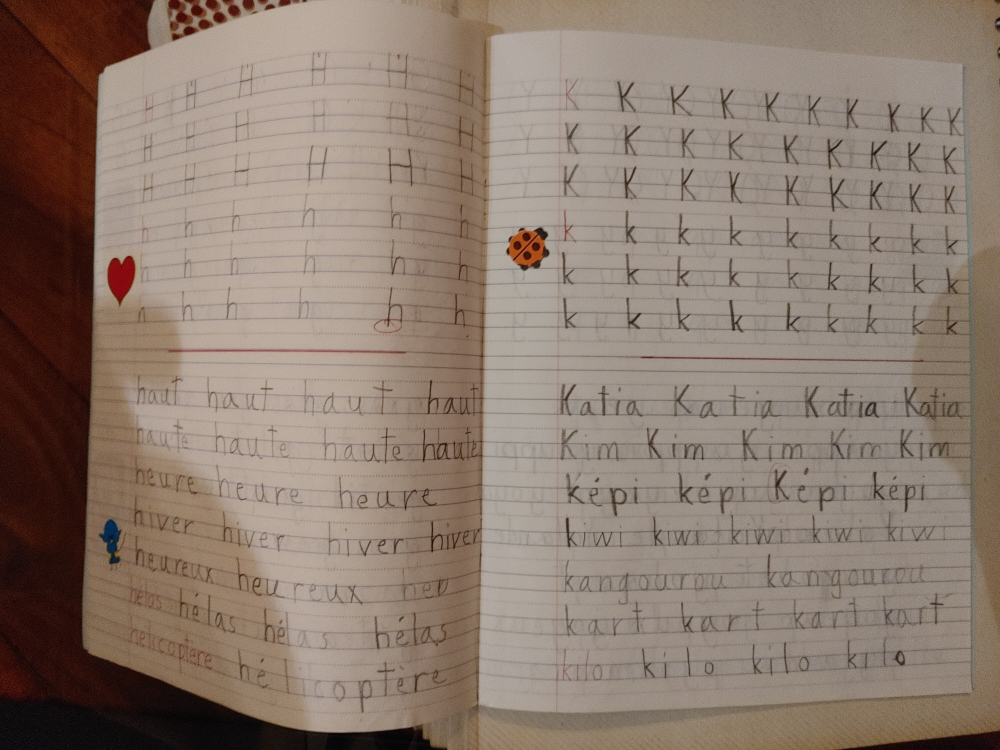 H H H H H H
H H H H H H
H H H H H H
h h h h h h
h h h h h h
h h h h h h
haut haut haut haut
haute haute haute haute
heure heure heure
hiver hiver hiver hiver
heureux heureux heu
hélas hélas hélas hélas
hélicoptère hélicoptère
K K K K K K K K K K
K K K K K K K K K
K K K K K K K K K
k k k k k k k k k
k k k k k k k k k
k k k k k k k k k
Katia Katia Katia Katia
Kim Kim Kim Kim Kim
képi képi Képi képi
kiwi kiwi kiwi kiwi kiwi
kangourou kangourou
kart kart kart kart
kilo kilo kilo kilo